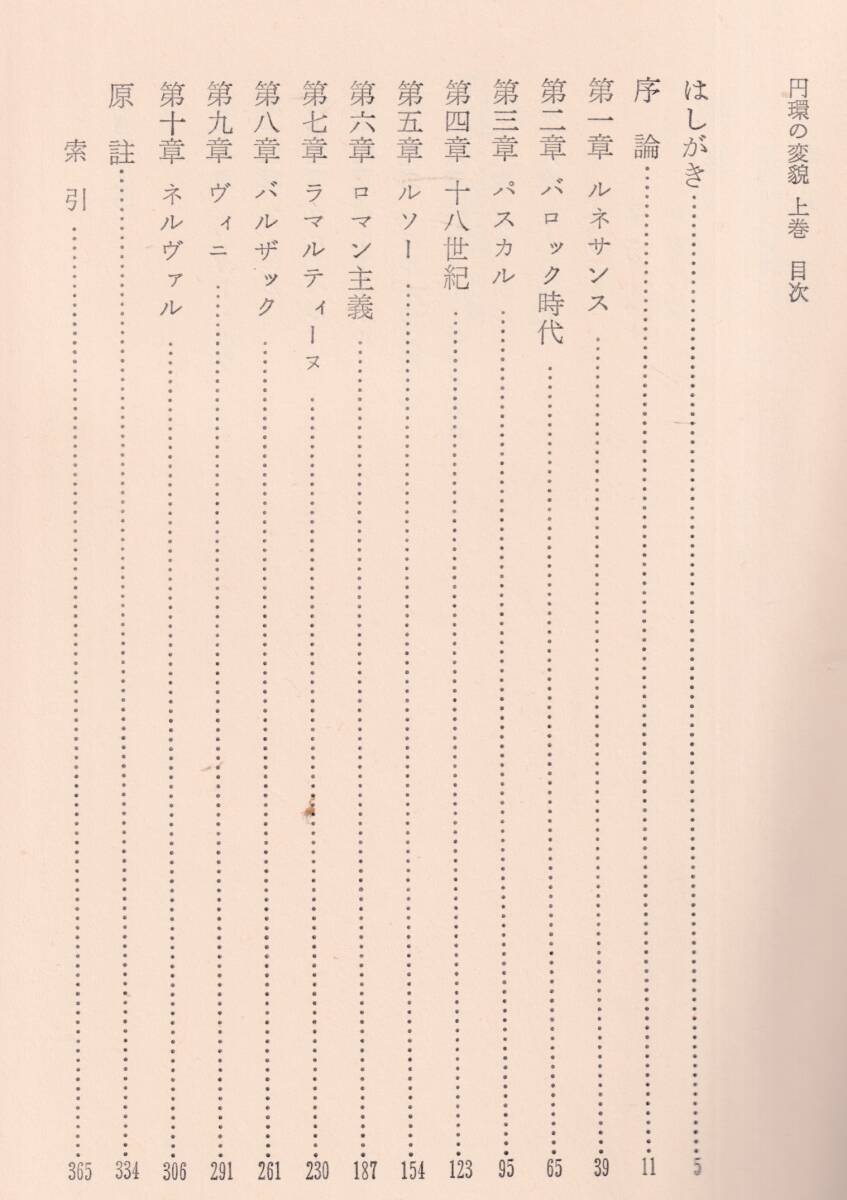 円環の変貌 上巻 目次
はしがき……5
序論……11
第一章 ルネサンス……39
第二章 バロック時代……65
第三章 パスカル……95
第四章 十八世紀……123
第五章 ルソー……154
第六章 ロマン主義……187
第七章 ラマルティーヌ……230
第八章 バルザック……261
第九章 ヴィニ……291
第十章 ネルヴァル……306
原註……334
索引……365